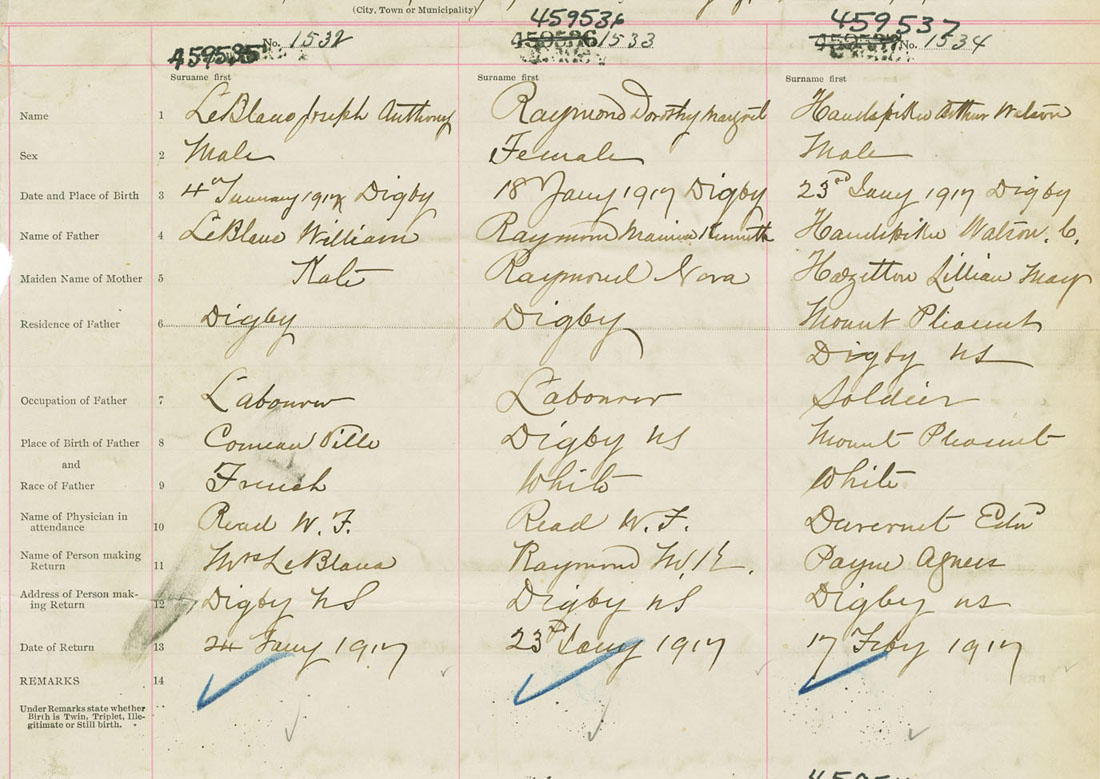 (City, Town or Municipality)
459536 459537
459535 No. 1532 459536 1533 No. 1534
Surname first Surname first Surname first
Name 1 LeBlanc Joseph Anthony Raymond Dorothy Margret Handspiker Arthur Watson
Sex 2 Male Female Male
Date and Place of Birth 3 4th January 1917 Digby 18th Jany 1917 Digby 23rd Jany 1917 Digby
Name of Father 4 LeBlanc William Raymond Maurice Kenneth Handspiker Watson. C.
Maiden Name of Mother 5 Kate Raymond Nora Hazelton Lillian May
Residence of Father 6 Digby Digby Mount Pleasant
Digby NS
Occupation of Father 7 Labourer Labourer Soldier
Place of Birth of Father 8 Comeau Ville Digby NS Mount Pleasant
and
Race of Father 9 French White White
Name of Physician in
attendance 10 Read W. F. Read W. F. Duvernet Edw
Name of Person making
Return 11 Mrs LeBlanc Raymond M. K. Payne Agnes
Address of Person mak-
ing Return 12 Digby NS Digby NS Digby NS
Date of Return 13 24 Jany 1917 23rd Jany 1917 17 Feby 1917
REMARKS 14
Under Remarks state whether
Birth is Twin, Triplet, Ille-
gitimate or Still birth.